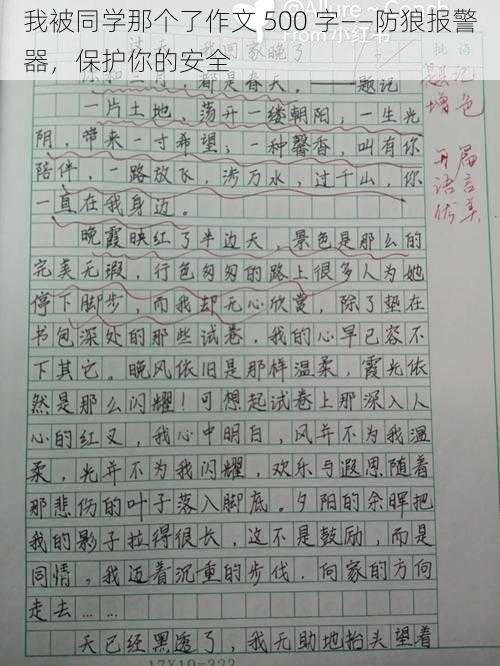 我被同学那个了作文 500 字——防狼报警
器，保护你的安全
@Allure ~ Concea
From 小红书
批语
我回家晚了
都是春天。——题记
一片土地，荡开一缕朝阳，一生光
阴，带来一寸希望，一种馨香，叫有你
陪伴，一路放飞，涉万水，过千山，你
一直在我身边。
晚霞映红了半边天，景色是那么的
完美无瑕，行色匆匆的路上很多人为她
停下脚步，而我却无心欣赏，除了垫在
书包深处的那些试卷，我的心早已容不
下其它。晚风依旧是那样温柔，霞光依
然是那么闪耀！可想起试卷上那深入人
心的红叉，我心中明白，风并不为我温
柔，光并不为我闪耀，欢乐与遐思随着
那悲伤的叶子落入脚底。夕阳的余晖把
我的影子拉得很长，这不是鼓励，而是
同情，我迈着沉重的步伐，向家的方向
走去……
天已经黑透了，我无助地抬头望着
题记
增色
开篇
语言
优美